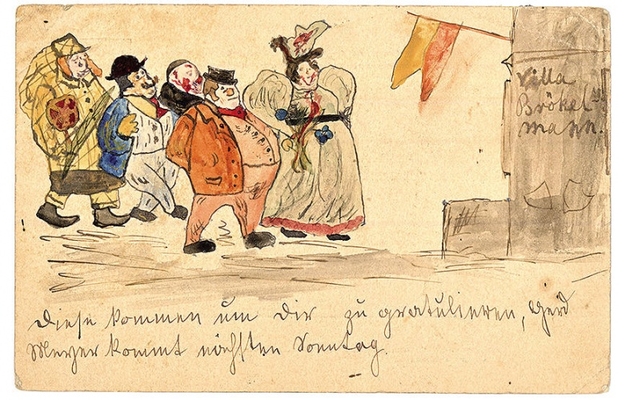 Villa
Brökel
mann.
Diese kommen um Dir zu gratulieren, Gerd
Meyer kommt nächsten Sonntag.